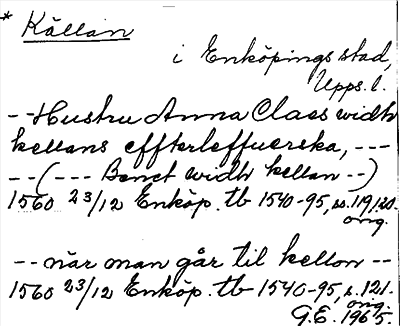 * Källan
i Enköpings stad,
Upps. l.
-- Hustru Anna Claes widh
kellans effterleffuerska, ---
-- (--- Benct widh kellan --)
1560 23/12 Enköp. tb 1540-95, s. 119, 120.
orig.
-- när man går til kellon --
1560 23/12 Enköp. tb 1540-95, s. 121.
orig.
G.E. 1965.